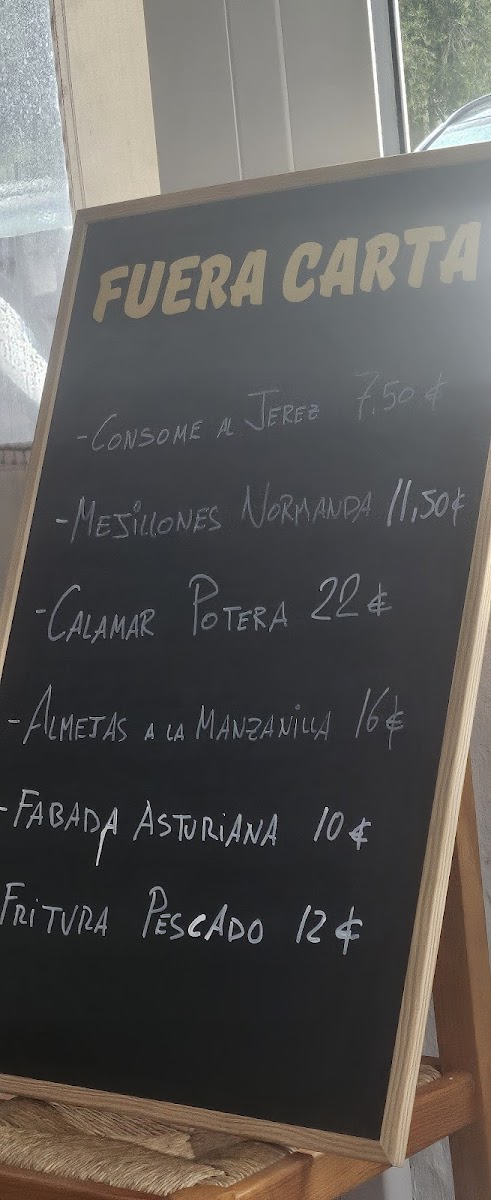 FUERA CARTA
- CONSOME AL JEREZ 7,50 €
- MEJILLONES NORMANDA 11,50 €
- CALAMAR POTERA 22 €
- ALMEJAS A LA MANZANILLA 16 €
- FABADA ASTURIANA 10 €
FRITURA PESCADO 12 €